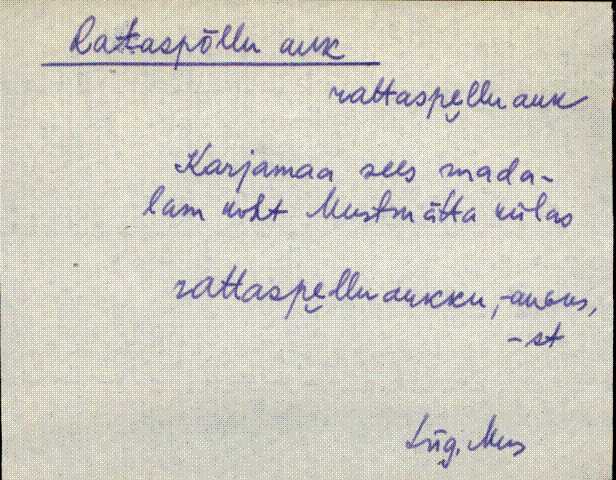 Rattaspõllu auk
rattaspe̮llu auk
Karjamaa sees mada-
lam koht Mustmätta külas
rattaspe̮llu aukku, -aukus,
-st
Lüg. Mus